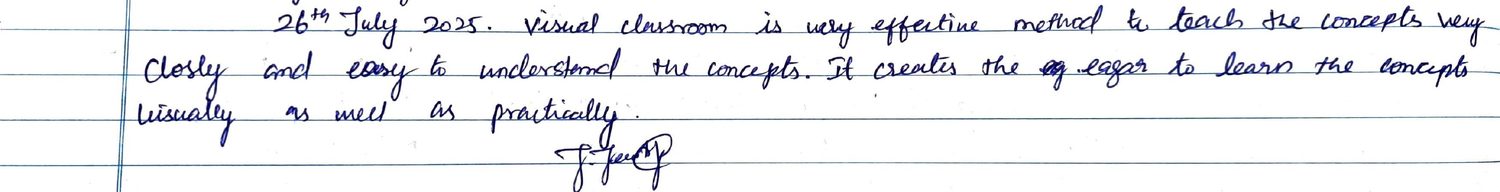 26th July 2025. Visual classroom is very effective method to teach the concepts very
closly and easy to understand the concepts. It creates the eagar to learn the concepts
visually as well as practically.